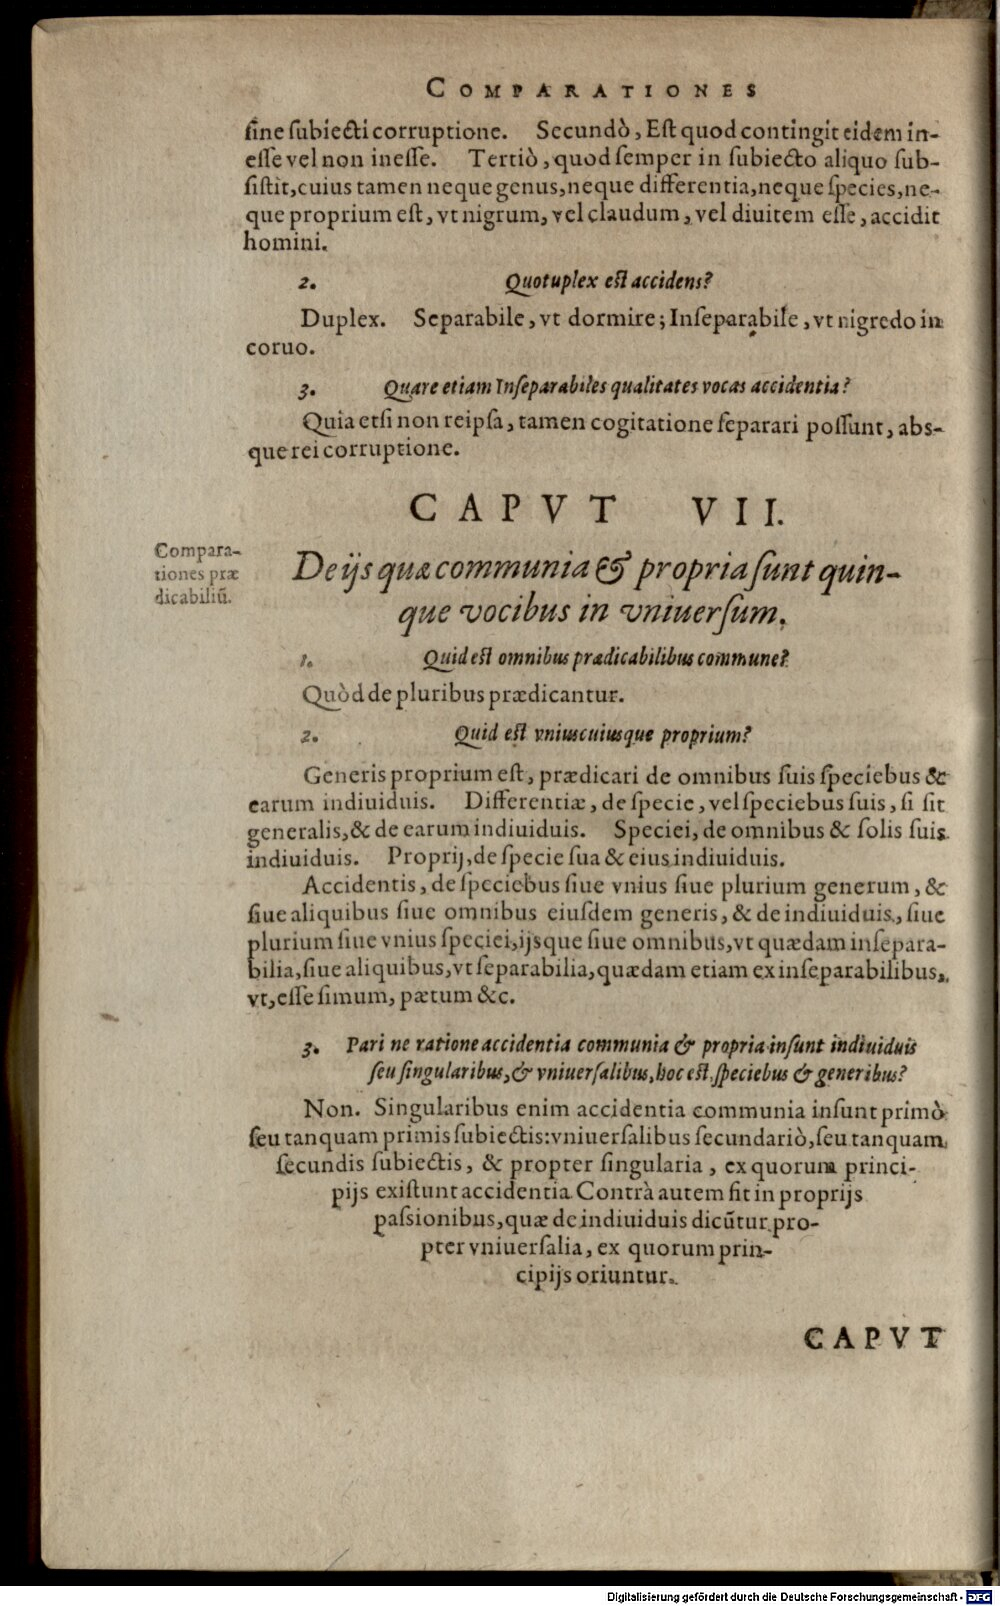 COMPARATIONES
ſine ſubiecti corruptione. Secundò, Eſt quod contingit eidem in-
eſſe vel non ineſſe. Tertiò, quod ſemper in ſubiecto aliquo ſub-
ſiſtit, cuius tamen neque genus, neque differentia, neque ſpecies, ne-
que proprium eſt, vt nigrum, vel claudum, vel diuitem eſſe, accidit
homini.
2. Quotuplex eſt accidens?
Duplex. Separabile, vt dormire; Inſeparabile, vt nigredo in
coruo.
3. Quare etiam Inſeparabiles qualitates vocas accidentia?
Quia etſi non reipſa, tamen cogitatione ſeparari poſſunt, abs-
que rei corruptione.
CAPVT VII.
Compara-
tiones præ
dicabiliũ.
De ijs quæ communia & propria ſunt quin-
que vocibus in vniuerſum.
1. Quid eſt omnibus prædicabilibus commune?
Quòd de pluribus prædicantur.
2. Quid eſt vniuscuiusque proprium?
Generis proprium eſt, prædicari de omnibus ſuis ſpeciebus &
earum indiuiduis. Differentiæ, de ſpecie, vel ſpeciebus ſuis, ſi ſit
generalis, & de earum indiuiduis. Speciei, de omnibus & ſolis ſuis
indiuiduis. Proprij, de ſpecie ſua & eius indiuiduis.
Accidentis, de ſpeciebus ſiue vnius ſiue plurium generum, &
ſiue aliquibus ſiue omnibus eiuſdem generis, & de indiuiduis, ſiue
plurium ſiue vnius ſpeciei, ijsque ſiue omnibus, vt quædam inſepara-
bilia, ſiue aliquibus, vt ſeparabilia, quædam etiam ex inſeparabilibus,
vt, eſſe ſimum, pætum &c.
3. Pari ne ratione accidentia communia & propria inſunt indiuiduis
ſeu ſingularibus, & vniuerſalibus, hoc eſt, ſpeciebus & generibus?
Non. Singularibus enim accidentia communia inſunt primò
ſeu tanquam primis ſubiectis: vniuerſalibus ſecundariò, ſeu tanquam
ſecundis ſubiectis, & propter ſingularia, ex quorum princi-
pijs exiſtunt accidentia. Contrà autem fit in proprijs
paſsionibus, quæ de indiuiduis dicũtur pro-
pter vniuerſalia, ex quorum prin-
cipijs oriuntur.
CAPVT
Digitalisierung gefördert durch die Deutsche Forschungsgemeinschaft - DFG